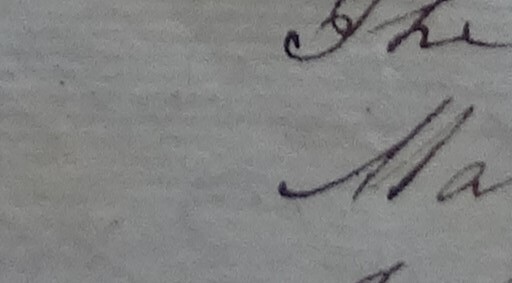 The
Ma